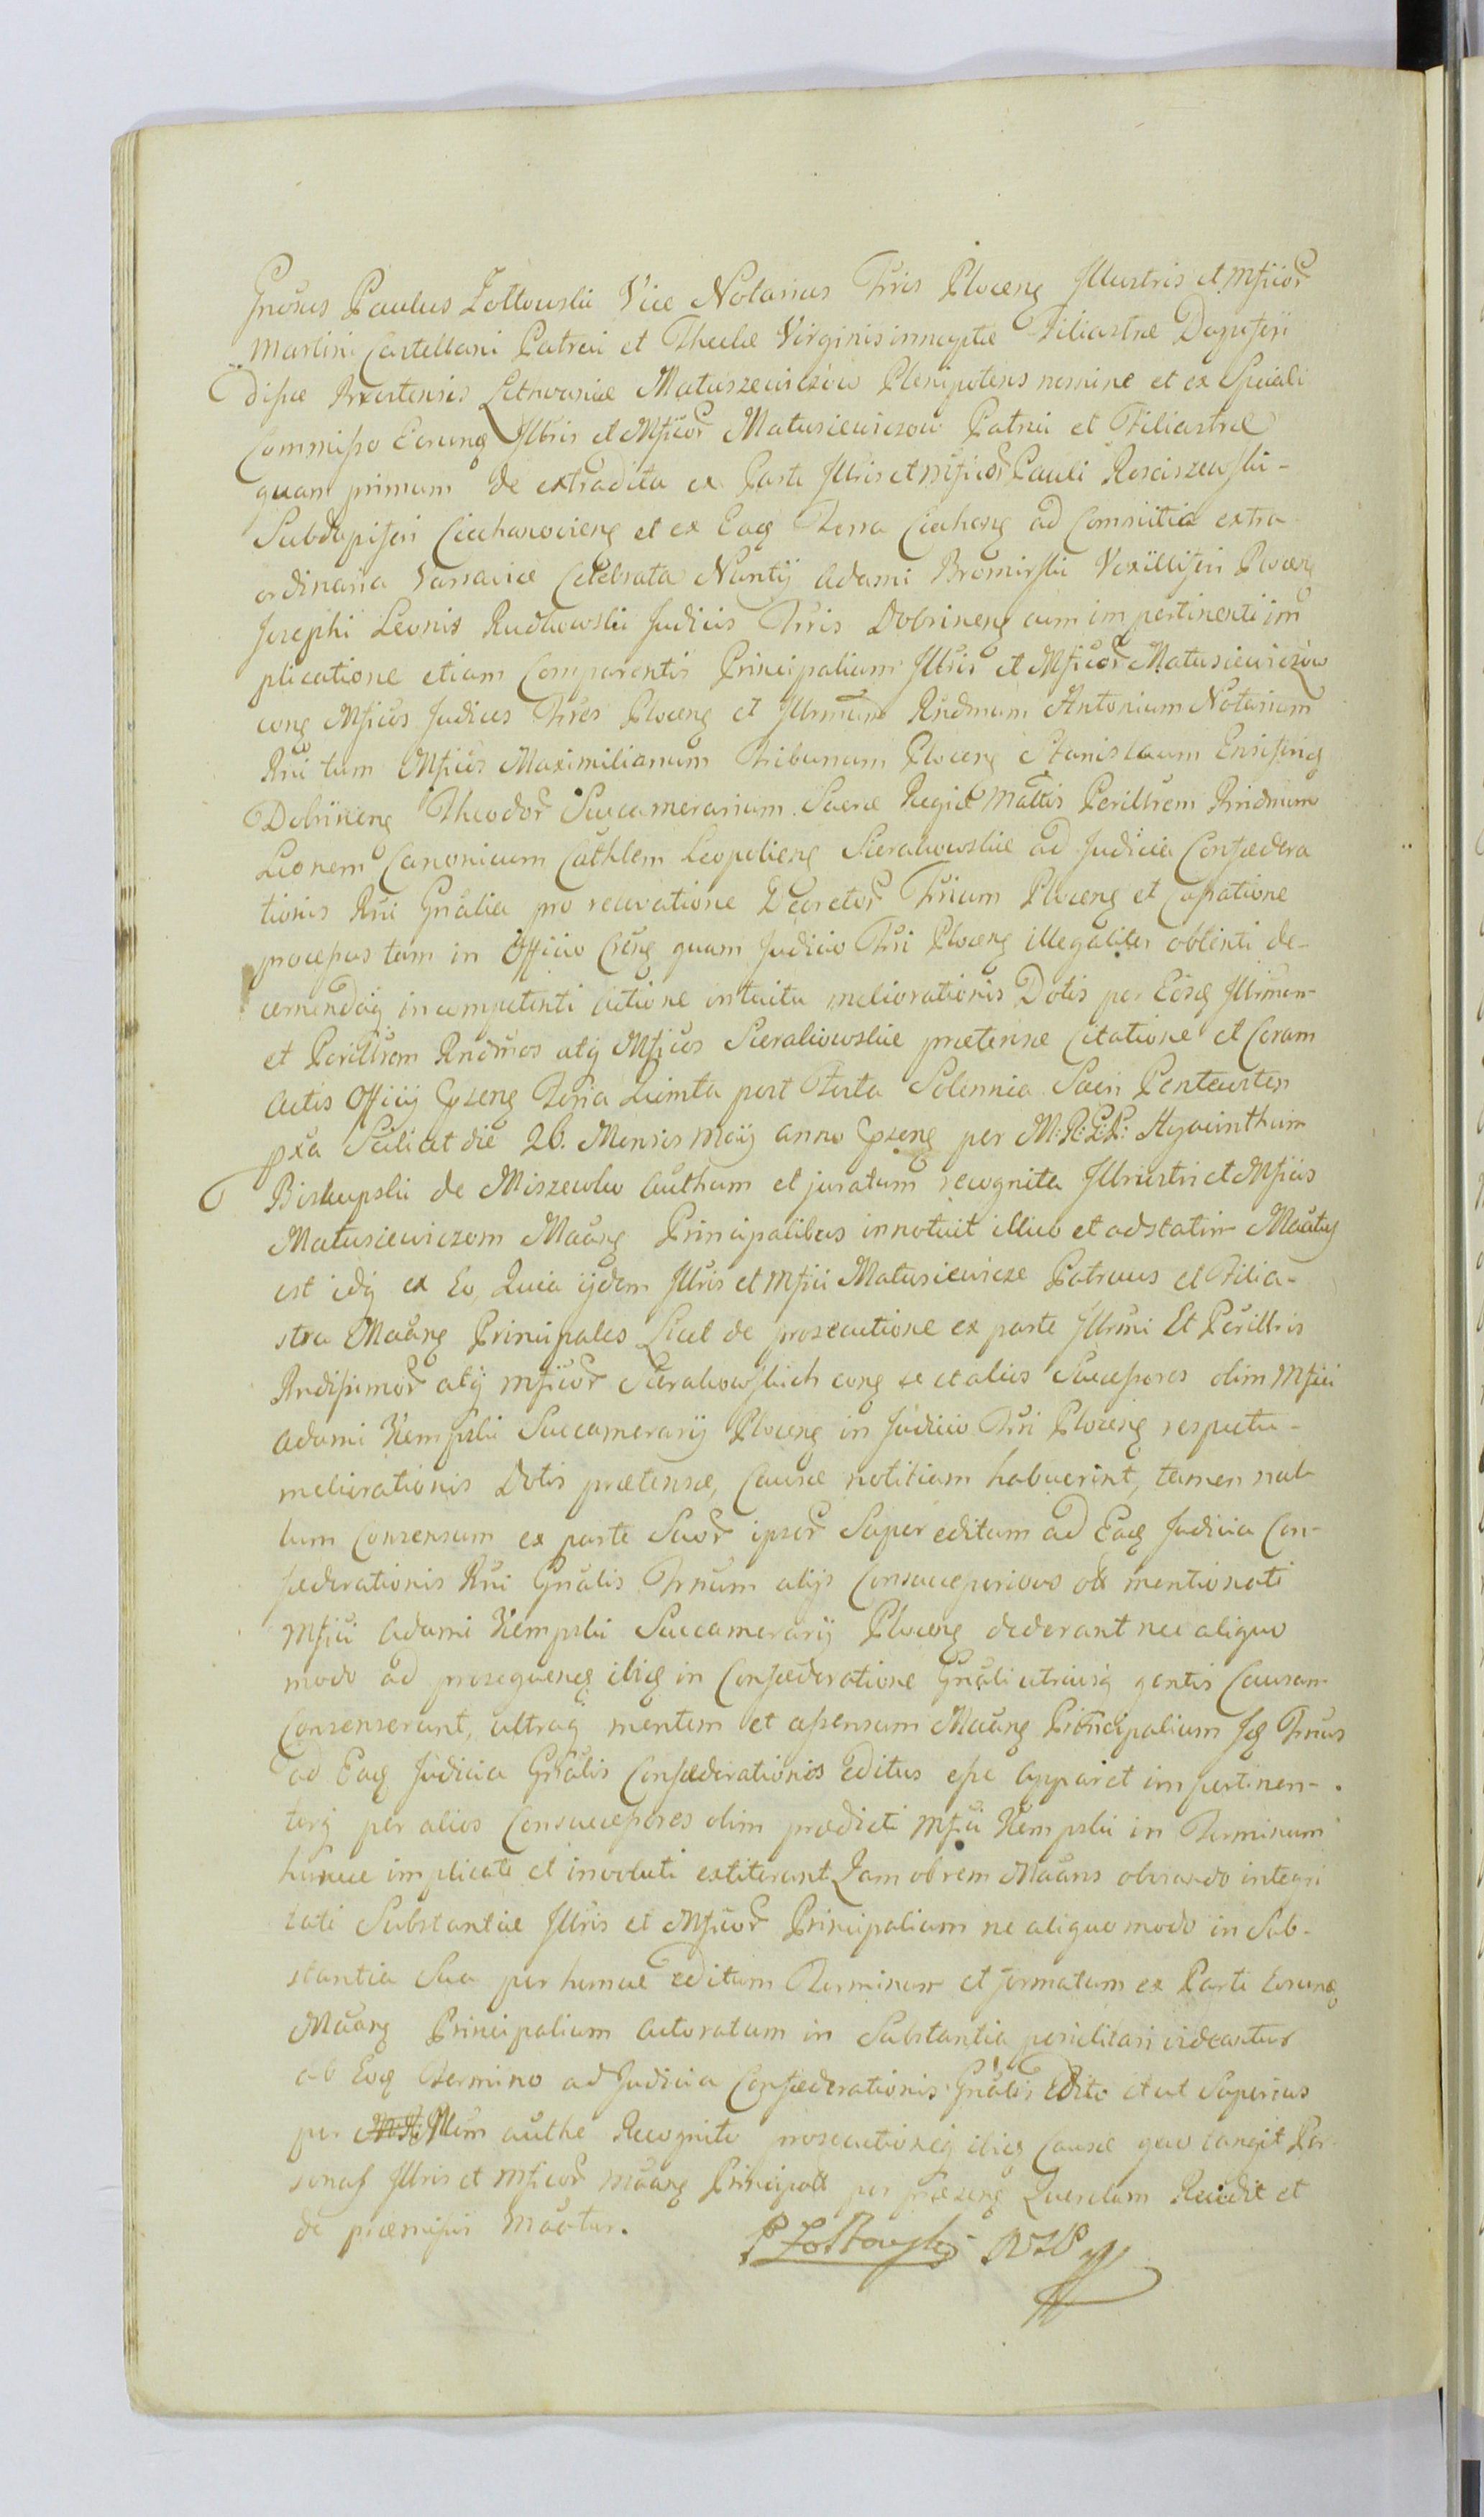 Gnosus Paulus Zoltowski Vice Notarius Trris Plocen Illustris et Mficor
Martini Castellani Patrui et Theclæ Virginis innuptæ Filiastræ Dapiferi
Brestensis Lithvaniæ Matuszewiczow Plenipotens nomine et ex Speciali
Commisso Eorund Illris et Mficor Matusiewiczow Patrui et Filiastræ
quam primum de extradita ex Parte Illris et Mficor Pauli Rosciszewski
Subdapiferi Ciechanovien et ex Ead Terra Ciechan ad Comitia extra
ordinaria Varsaviæ Celebrata Nuntij Adami Bromirski Vexilliferi Plocen
Josephi Leonis Rudowski Judicis Trris Dobrinen cum impertinenti im
plicatione etiam Comparentis Principalium Illris et Mficor Matusiewiczow
cont Mficos Judices Trres Plocen et Illrmum Rndmum Antonium Notarium
Rni tum Mficos Maximilianum Tribunum Plocen Stanislaum Ensiferum
Dobrinen Theodor Succamerarium Sacræ Regiæ Mattis Perillrem Rndmum
Leonem Canonicum Cathlem Leopolien Sierakowskie ad Judicia Confœdera
tionis Rni Gnalia pro relevatione Decretor Trrium Plocen et Cassatione
processus tam in Officio Cren quam Judicio Trri Plocen illegaliter obtenti de-
cernendaq incompetenti actione intuitu meliorationis Dotis per Eosd Illrmum
et Perillrem Rndmos atq Mficos Sierakowskie prætensæ Citatione et Coram
Actis Officij Pszen Feria Quinta post Festa Solennia Sacri Pentecostes
pxa Scilicet die 26. Mensis Maij anno Pszen per M: R: G: D: Hyacinthum
Biskupski de Miszewko authum et juratum recognita Illrustri et Mficis
Matusiewiczom Maan Principalibus innotuit illico et adstatim Maatus
est idq ex Eo, Quia ijdem Illris et Mfici Matusiewicze Patruus et Filia-
stra Maan Principales Licet de prosecutione ex parte Illrmi Et Perillris
Rndissimor atq Mficor Sierakowskich con se et alios Successores olim Mfici
Adami Kempski Succamerarij Plocen in Judicio Trri Plocen respectu
meliorationis Dotis prætensæ, Causæ notitiam habuerint, tamen nul-
lum Consensum ex parte Suor ipsor Super editum ad Ead Judicia Con-
fœderationis Rni Gnalis Trnum alijs Consuccessoribus mentionati
Mfici Adami Kempski Succamerarij Plocen dederant nec aliquo
modo ad prosequend ibid in Confœderatione Gnali utriusq gentis Causam
Consenserunt, ultraq mentem et assensum Maan Principalium Id Trnus
ad Ead Judicia Gnalis Confœderationis Editus esse Apparet impertinen-
terq per alios Consuccessores olim prædicti Mfici Kempski in Terminum
hunce implicati et involuti extiterunt Quam ob rem Maans obviando integri
tati Substantiæ Illris et Mficor Principalium ne aliquo modo in Sub-
stantia Sua per hunce editum Terminum et formatum ex Parte Eorund
Maan Principalium Actoratum in Substantia periclitari videantur
ab Eod Termino ad Judicia Confœderationis Gnalis Edito et ut Superius
per Mlem authe Recognito prosecutioneq ibid Causæ quo tangit Per-
sonas Illris et Mficor Maan Principal per præsen Querelam Recedit et
de præmissis Maatur.
P Zoltowski